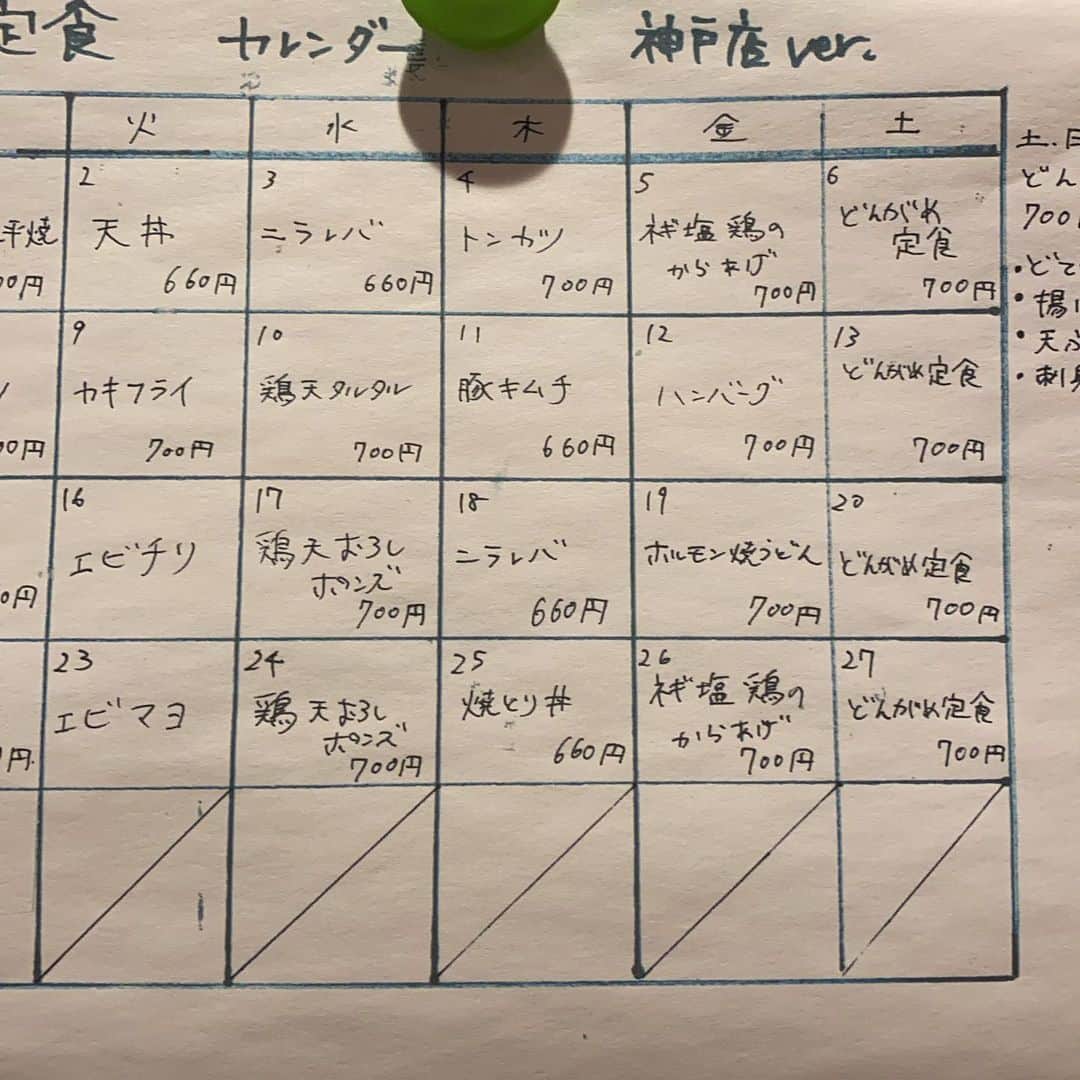 定食 カレンダー 神戸店 ver.
火 水 木 金 土
2 3 4 5 6
平焼 天丼 ニラレバ トンカツ ネギ塩鶏の からあげ どんがめ 定食
00円 660円 660円 700円 700円 700円
9 10 11 12 13
カキフライ 鶏天タルタル 豚キムチ ハンバーグ どんがめ定食
00円 700円 700円 660円 700円 700円
16 17 18 19 20
エビチリ 鶏天おろし ポンズ ニラレバ ホルモン焼うどん どんがめ定食
0円 700円 660円 700円 700円
23 24 25 26 27
エビマヨ 鶏天おろし ポンズ 焼とり丼 ネギ塩鶏の からあげ どんがめ定食
円 700円 660円 700円 700円
土.日
どん
700円
・どて
・揚げ
・天ぷ
・刺身